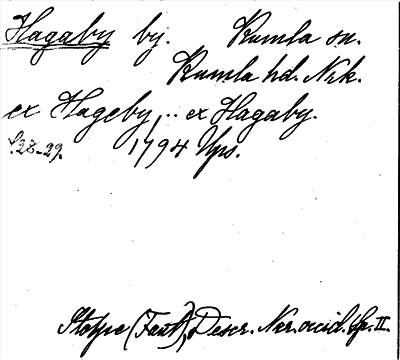 Hagaby by. Kumla sn.
Kumla hd. Nrk.
ex Hageby, .. ex Hagaby.
S. 28-29. 1794 Ups.
Stolpe (Fant), Descr. Ner. occid. Sp. II.